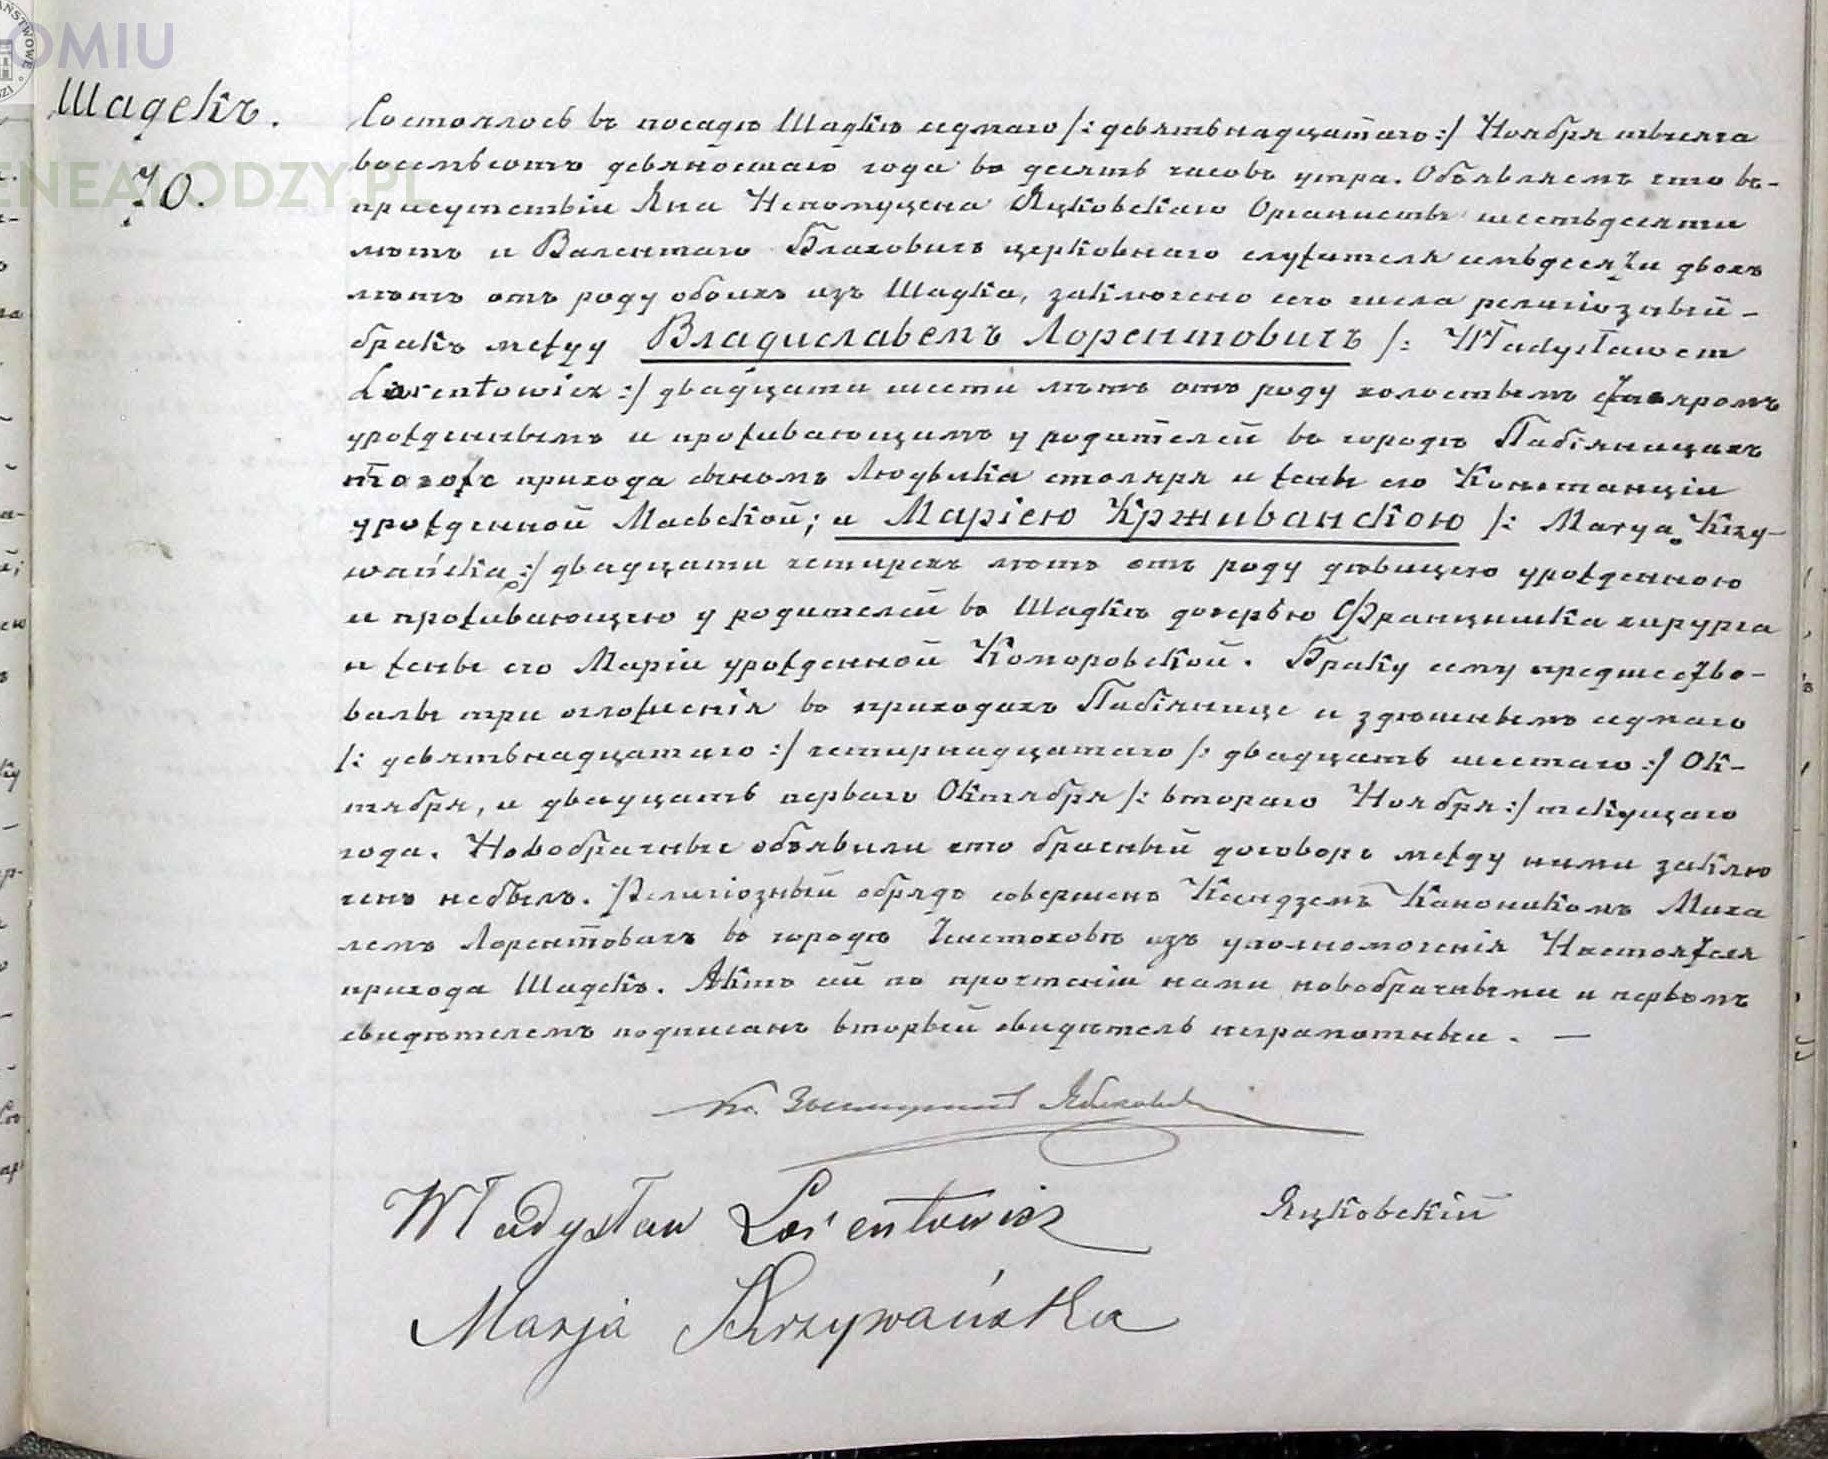 ОМIU
Шадекъ.
Состоялось въ посадѣ Шадкѣ седмаго /: девятьнадцатаго :/ Ноября тысяча
GENEALODZY.PL
70.
восемьсотъ девяностаго года въ десять часовъ утра. Объявляемъ что въ-
присутствіи Яна Непомуцена Яцковскаго Органисты шестьдесяти
лѣтъ и Валентаго церковнаго служителя семьдесяти двохъ
лѣтъ отъ роду обоихъ изъ Шадка, заключено сего числа религіозный-
бракъ между Владиславемъ Лорентовичъ /: Władysławem
Lorentowicz :/ двадцати шести лѣтъ отъ роду холостымъ столяромъ
урожденнымъ и проживающимъ у родителей въ городѣ Пабіяницахъ
тогоже прихода сыномъ Людвика столяра и жены его Констанціи
урожденной Маевской; и Маріею Крживанскою /: Marya Krzy-
wańska :/ двадцати четырехъ лѣтъ отъ роду дѣвицею урожденною
и проживающею у родителей въ Шадкѣ дочерью Францишка хирурга
и жены его Маріи урожденной Коморовской. Браку сему предшество-
валы три оглошенія въ приходахъ Пабіянице и здѣшнымъ седмаго
/: девятьнадцатаго :/ четырнадцатаго /: двадцать шестаго :/ Ок-
тября, и двадцать перваго Октября /: втораго Ноября :/ текущаго
года. Новобрачные объявили что брачный договоръ между ними заклю
ченъ небылъ. Религіозный обрядъ совершенъ Ксендземъ Каноникомъ Миха
лемъ въ городѣ Ченстоховѣ изъ уполномоченія Настоятеля
прихода Шадекъ. Актъ сей по прочтеніи нами новобрачными и первымъ
свидѣтелемъ подписанъ вторый свидѣтель неграмотный. —
Кс.
Władysław Lorentowicz
Яцковскій
Marja Krzywańska